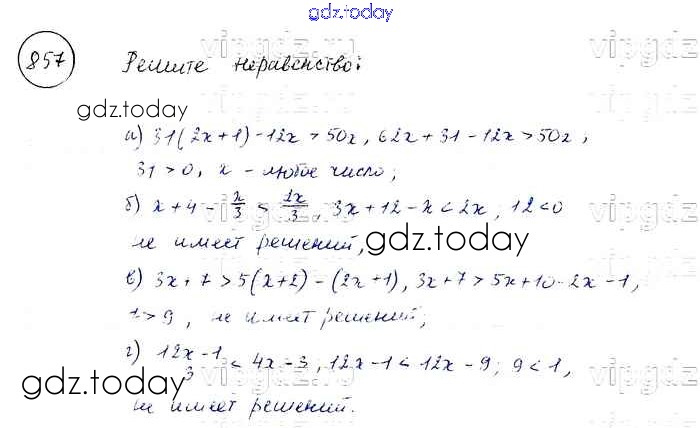 gdz.today
vipgdz.ru
857 Решите неравенство:
gdz.today
а) 31(2x+1)-12x>50x, 62x+31-12x>50x;
31>0, x - любое число;
vipgdz.ru
б) x+4-x/3<2x/3, 3x+12-x<2x; 12<0
не имеет решений,
gdz.today
в) 3x+7>5(x+2)-(2x+1), 3x+7>5x+10-2x-1,
7>9, не имеет решений;
г) (12x-1)/3<4x-3, 12x-1<12x-9; 9<1,
gdz.today
не имеет решений.